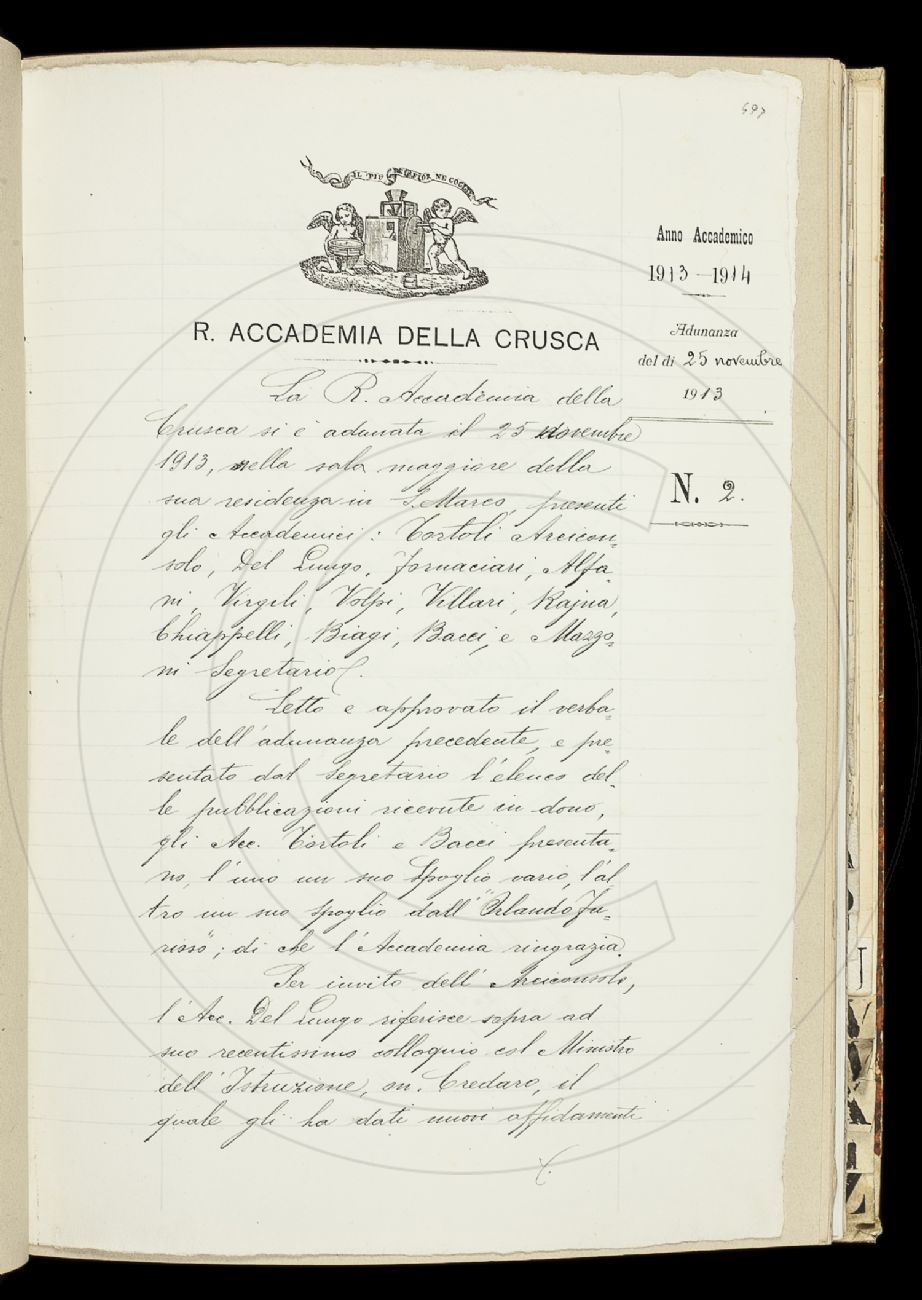 697
IL PIÙ BEL FIOR NE COGLIE
Anno Accademico
1913-1914
Adunanza
del dì 25 novembre
1913
N. 2.
R. ACCADEMIA DELLA CRUSCA
La R. Accademia della
Crusca si è adunata il 25 novembre
1913, nella sala maggiore della
sua residenza in S. Marco, presenti
gli Accademici: Tortoli Arcicon=
solo, Del Lungo, Fornaciari, Alfa=
ni, Virgili, Volpi, Villari, Rajna,
Chiappelli, Biagi, Bacci, e Mazzo=
ni Segretario.
Letto e approvato il verba=
le dell'adunanza precedente, e pre=
sentato dal Segretario l'elenco del=
le pubblicazioni ricevute in dono,
gli Acc. Tortoli e Bacci presenta=
no, l'uno un suo Spoglio vario, l'al
tro un suo spoglio dall'"Orlando Fu=
rioso"; di che l'Accademia ringrazia.
Per invito dell'Arciconsolo,
l'Acc. Del Lungo riferisce sopra ad
suo recentissimo colloquio col Ministro
dell'Istruzione, on. Credaro, il
quale gli ha dati nuovi affidamenti